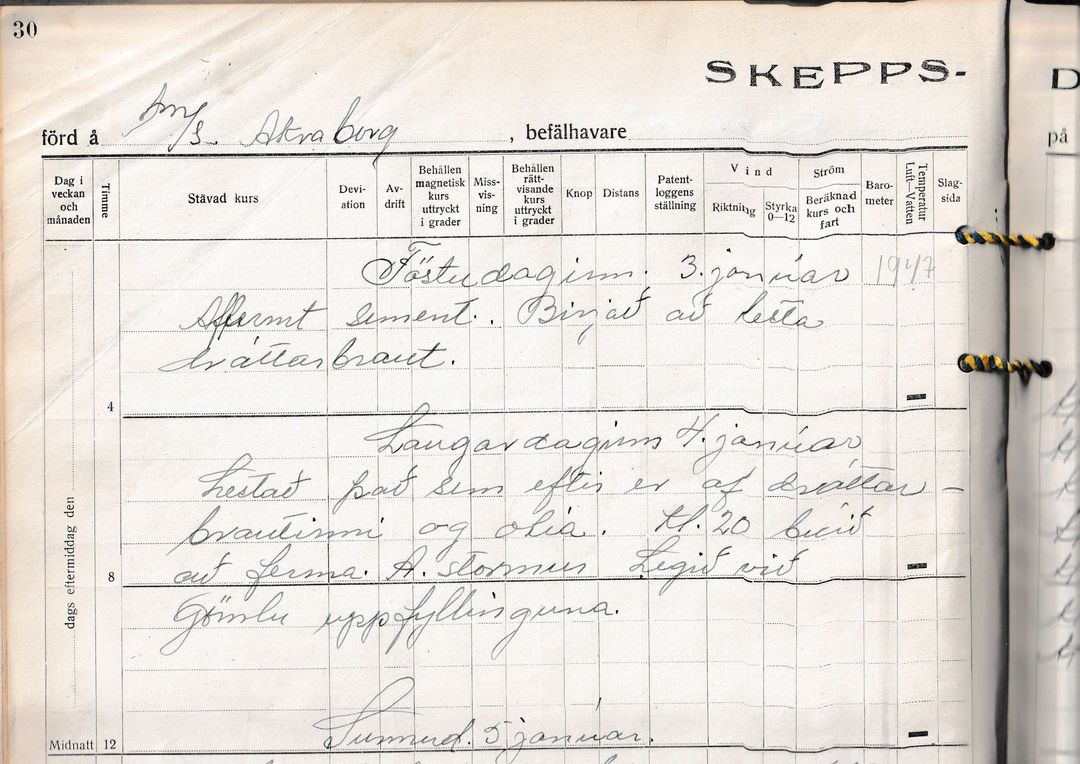 30
SKEPPS-
förd å m/s. Akraborg, befälhavare
Dag i veckan och månaden
Timme
Stävad kurs
Deviation
Avdrift
Behållen magnetisk kurs uttryckt i grader
Missvisning
Behållen rättvisande kurs uttryckt i grader
Knop
Distans
Patentloggens ställning
Vind
Riktning
Styrka 0—12
Ström
Beräknad kurs och fart
Barometer
Temperatur Luft—Vatten
Slagsida
D
på
Föstudaginn. 3. janúar 1947
Affermt sement. Birjað að lesta
dráttarbraut.
4
Laugardaginn 4. janúar
Lestað það sem eftir er af dráttar-
brautinni og olía. Kl. 20 búið
að ferma. A. stormur Legið við
8
Gömlu uppfyllinguna.
dags eftermiddag den
Sunnud. 5 janúar.
Midnatt 12